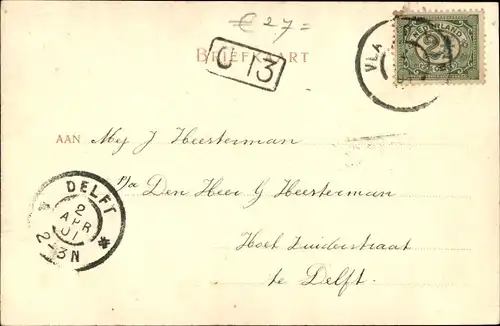 € 27=
BRIEFKAART
C 13
VLA
NEDERLAND
2½
AAN Mej J Heesterman
p/a Den Heer G Heesterman
Hoek Zuiderstraat
te Delft.
DELFT
2
APR
01
2-3N